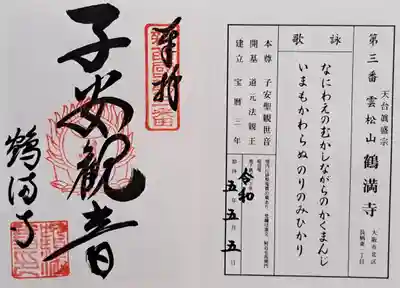 奉拝
子安観音
鶴満寺
第三番 天台眞盛宗 雲松山 鶴満寺 大阪市北区長柄東一丁目
詠歌
なにわえのむかしながらのかくまんじ
いまもかわらぬのりのみひかり
本尊 子安聖観世音
開基 道元法親王
建立 宝暦三年
令和五年五月五日